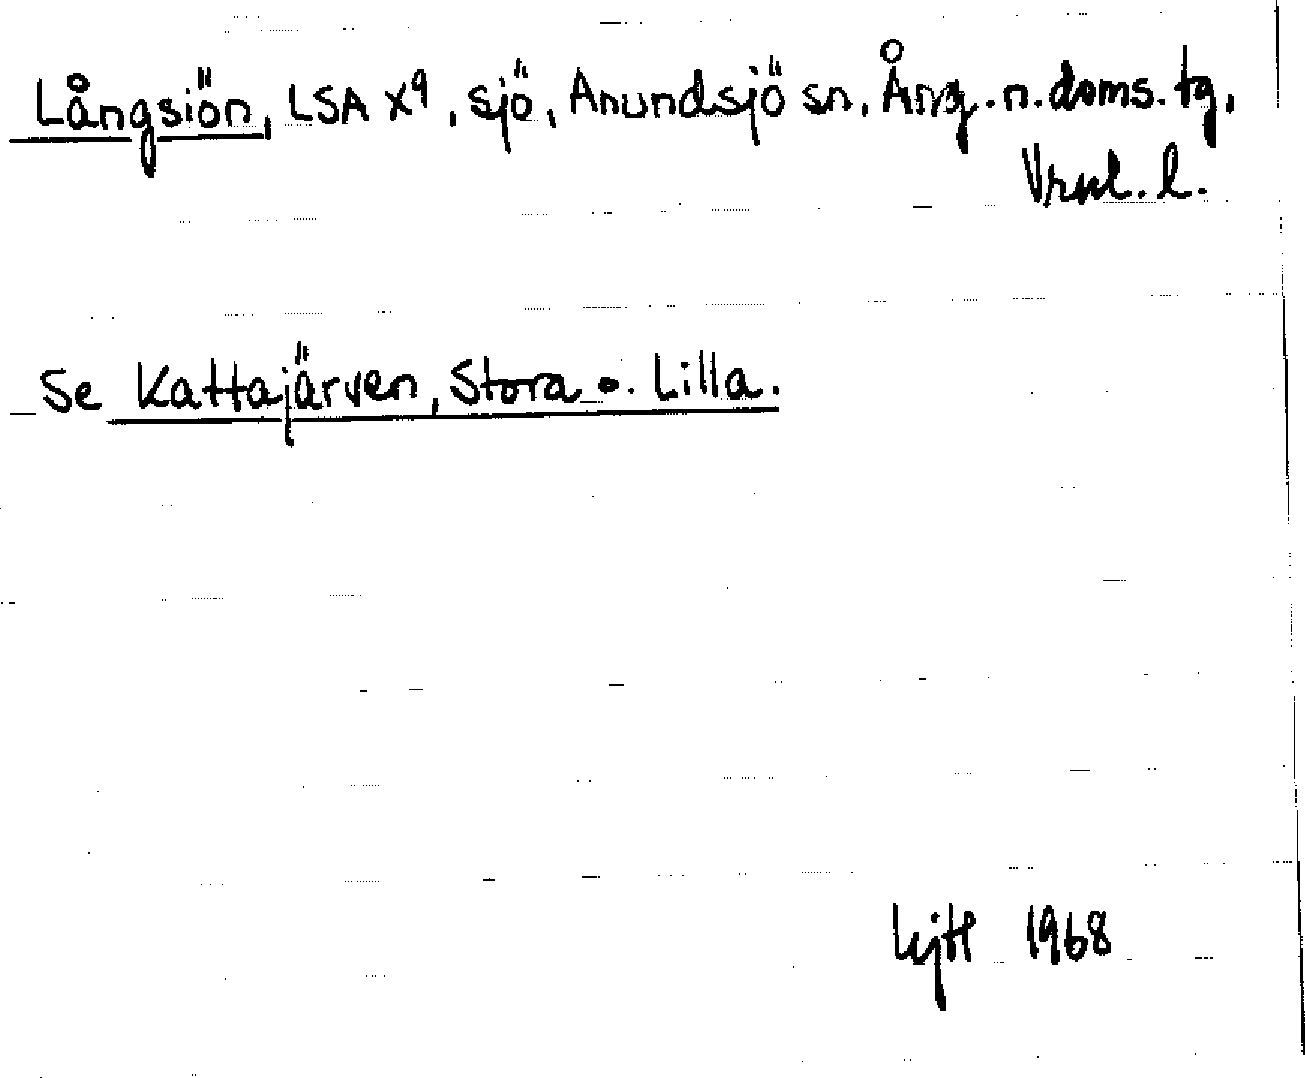 Långsiön, LSA X9, sjö, Anundsjö sn, Ång. n. doms. tg,
Vrnl. l.
Se Kattajärven, Stora o. Lilla.
1968